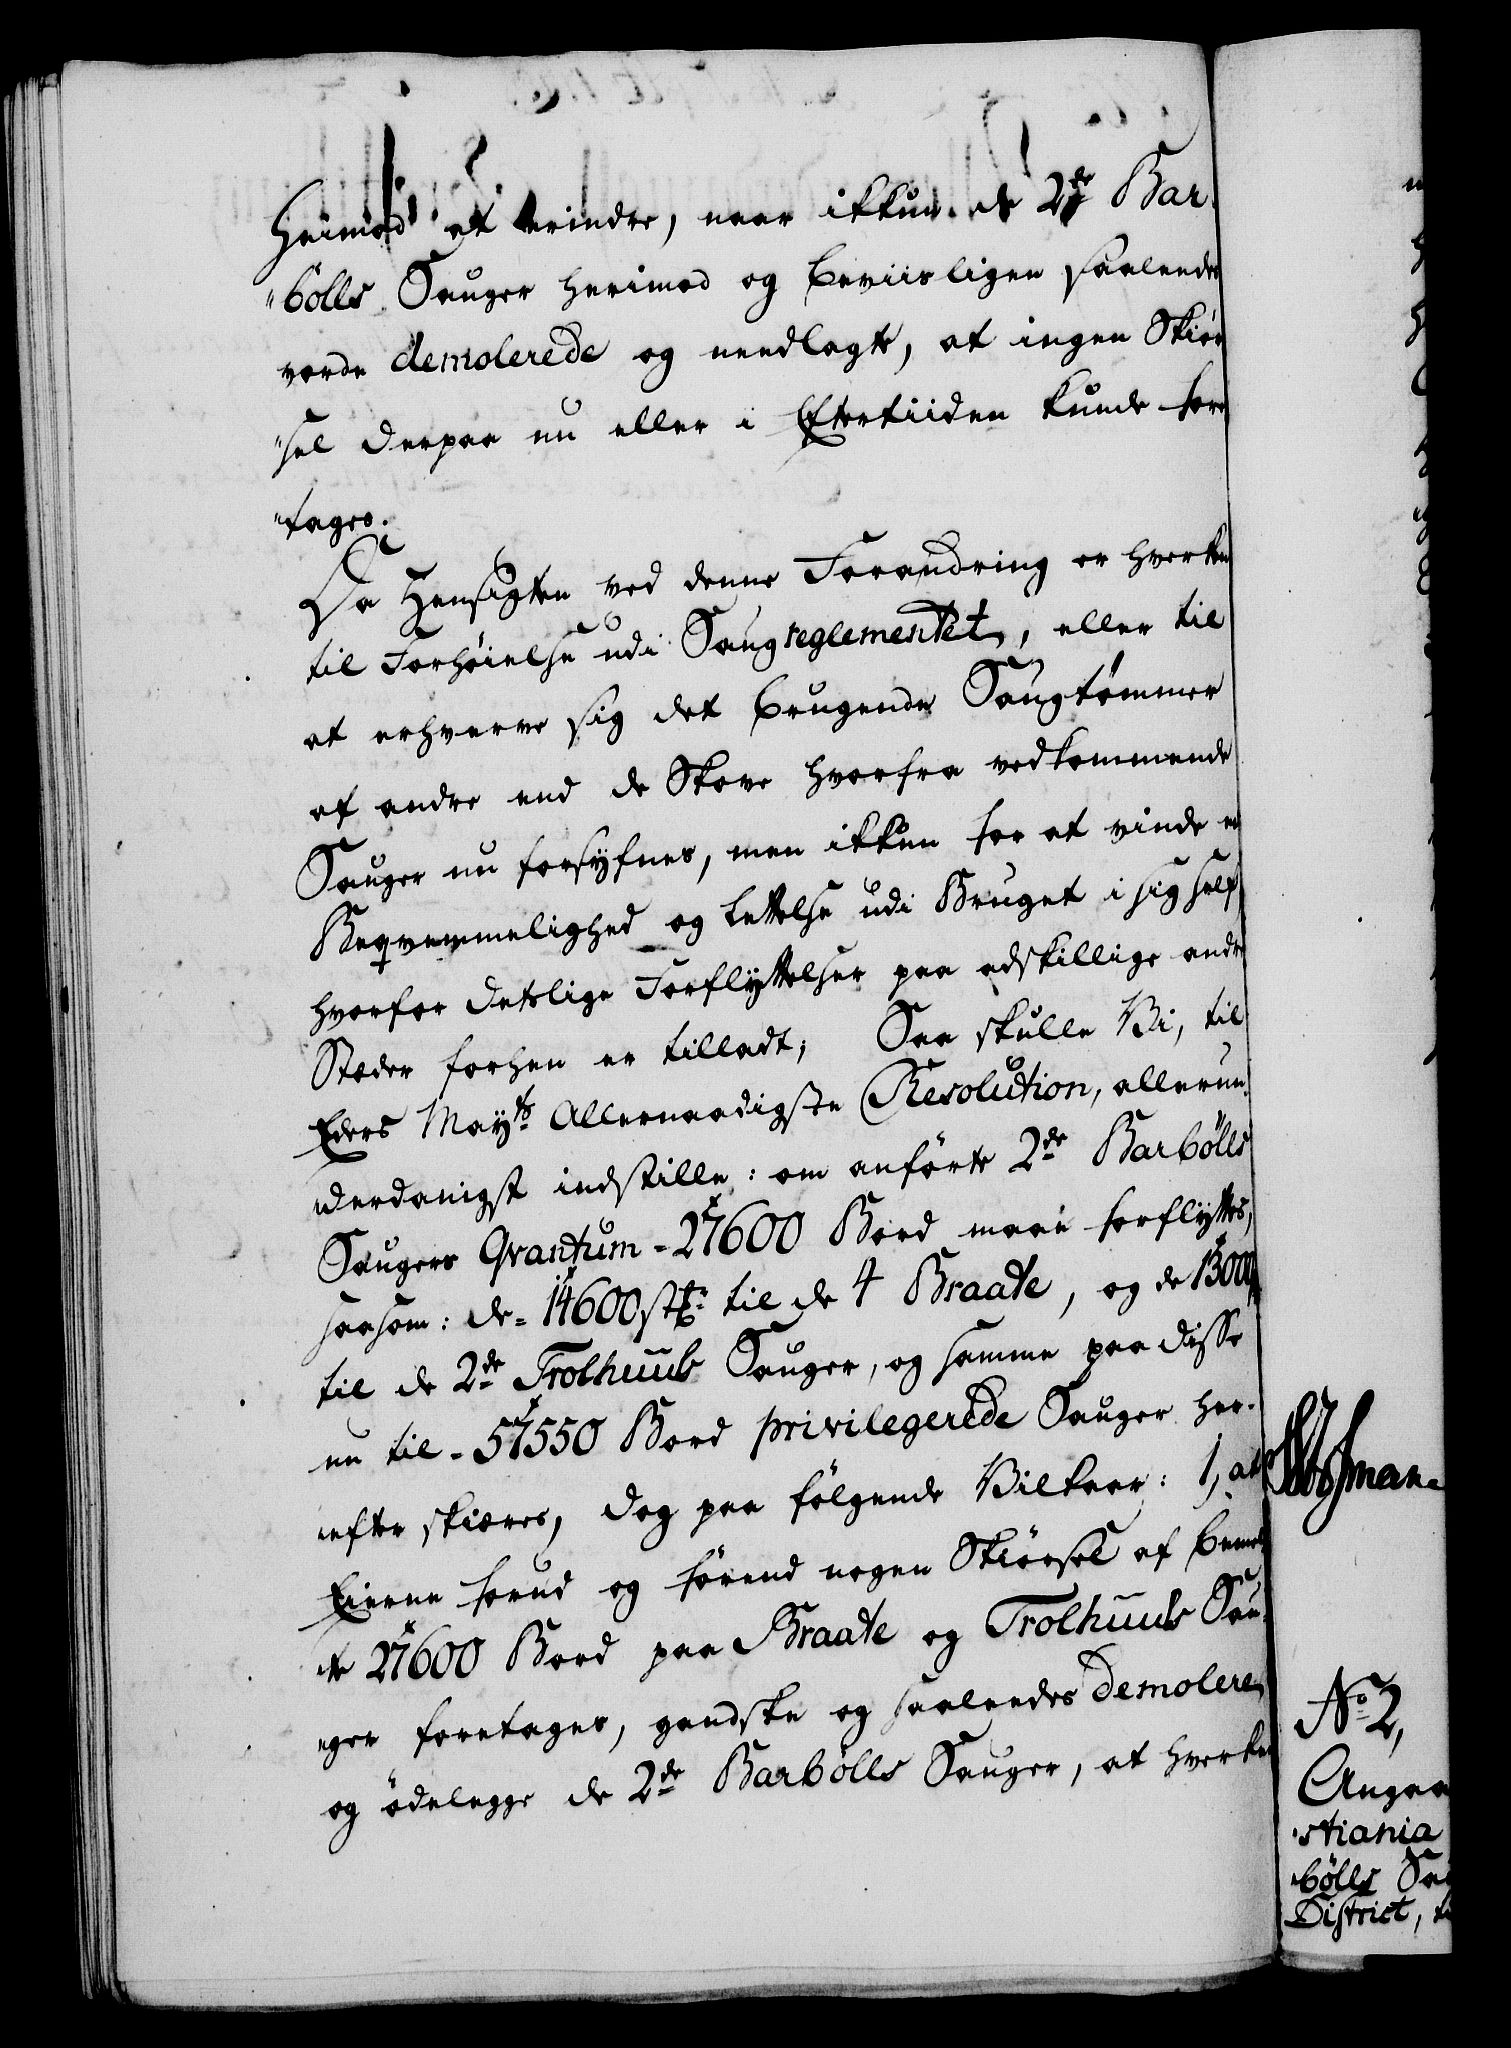 Heimod at erindre, naar ikkun de 2de Bar-
"bölls Sauger herimod og beviisligen saaledes
vorde demolerede og needlagte, at ingen Skiør
"sel derpaa nu eller i Eftertiiden kunde fore
"tages.
Da Hensigten ved denne Forandring er hverken
til Forhøielse udi Saugreglementet, eller til
at erhverve sig det brugende Saugtømmer
af andre end de Skove hvorfra vedkommende
Sauger nu forsyfnes, men ikkun for at vinde en
Beqvemmelighed og Lettelse udi Bruget i sig self
hvorfor detslige Forflyttelser paa adskillige andre
Stæder forhen er tilladt; Saa skulle Vi, til
Eders Mayts Allernaadigste Resolution, allerun-
derdanigst indstille: om anførte 2de Barbölls
Saugers Qvantum - 27600 Bord maae forflyttes,
saasom: de = 14600 st: til de 4 Braate, og de 13000
til de 2de Trolhuuls Sauger, og samme paa disse
nu til - 57550 Bord privilegerede Sauger her-
efter skiæres, dog paa følgende Vilkaar: 1, at
Eierne forud og førend nogen Skiørsel af bemel
te 27600 Bord paa Braate og Trolhuuls Sau-
ger foretages, gandske og saaledes demolere
og ödelegge de 2de Barbölls Sauger, at hverken
No 2,
Angaa
stiania
bölls Sau
District,